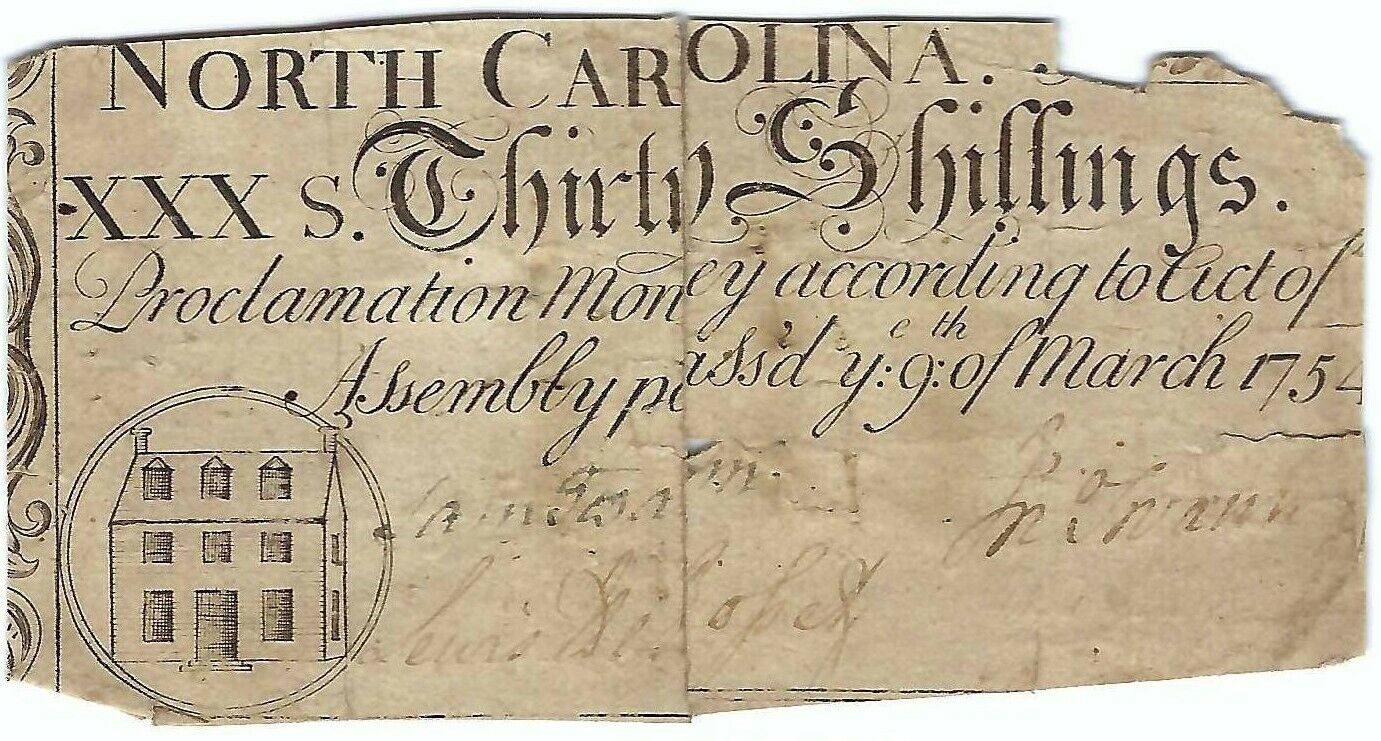 NORTH CAROLINA.
XXX S. Thirty Shillings.
Proclamation Money according to Act of
Assembly pass'd yᵉ: 9ᵗʰ: of March 1754